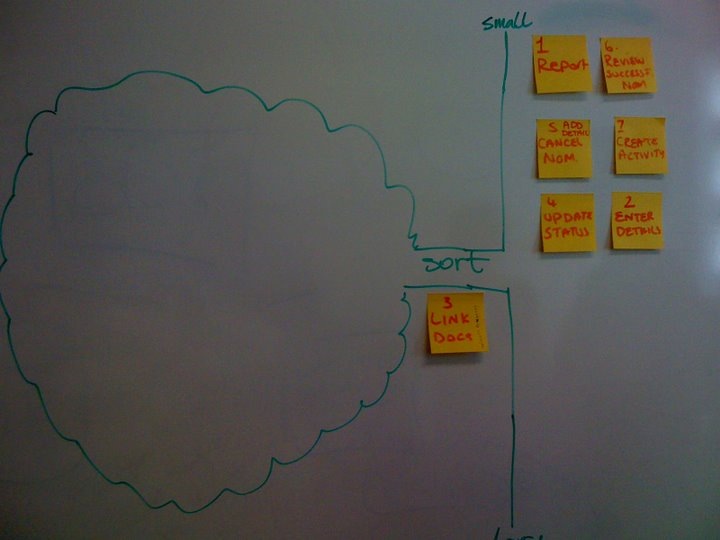 small
1
Report
6.
REVIEW
SUCCESSF.
NOM
5 ADD
DETAIL
CANCEL
NOM.
7
CREATE
ACTIVITY
4
UPDATE
STATUS
2
ENTER
DETAILS
sort
3
LINK
DOCS